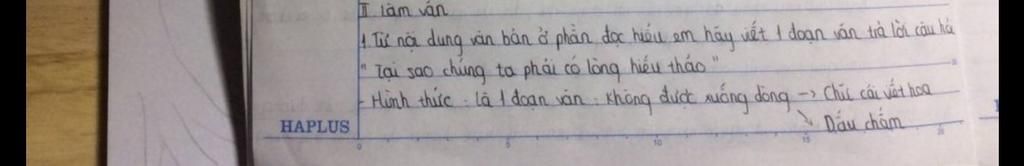 II làm văn
1. Từ nội dung văn bản ở phần đọc hiểu em hãy viết 1 đoạn văn trả lời câu hỏi
" Tại sao chúng ta phải có lòng hiếu thảo "
- Hình thức : là 1 đoạn văn : không được xuống dòng → Chữ cái viết hoa
↘ Dấu chấm
HAPLUS
0 5 10 15 20